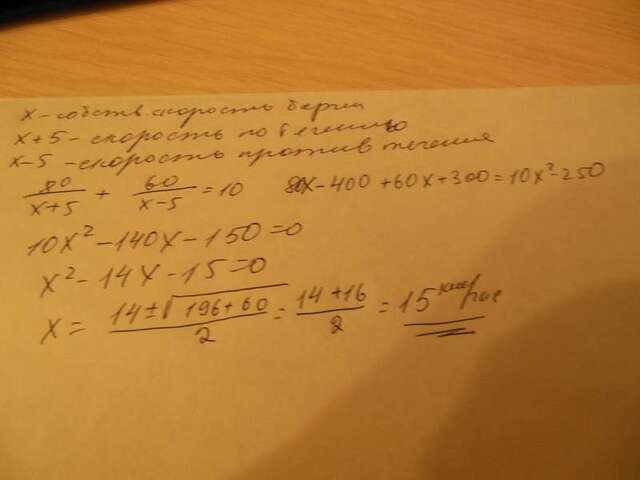 x - собств. скорость баржи
x+5 - скорость по течению
x-5 - скорость против течения
80/(x+5) + 60/(x-5) = 10 80x - 400 + 60x + 300 = 10x² - 250
10x² - 140x - 150 = 0
x² - 14x - 15 = 0
x = (14 ± √(196+60))/2 = (14+16)/2 = 15 км/час